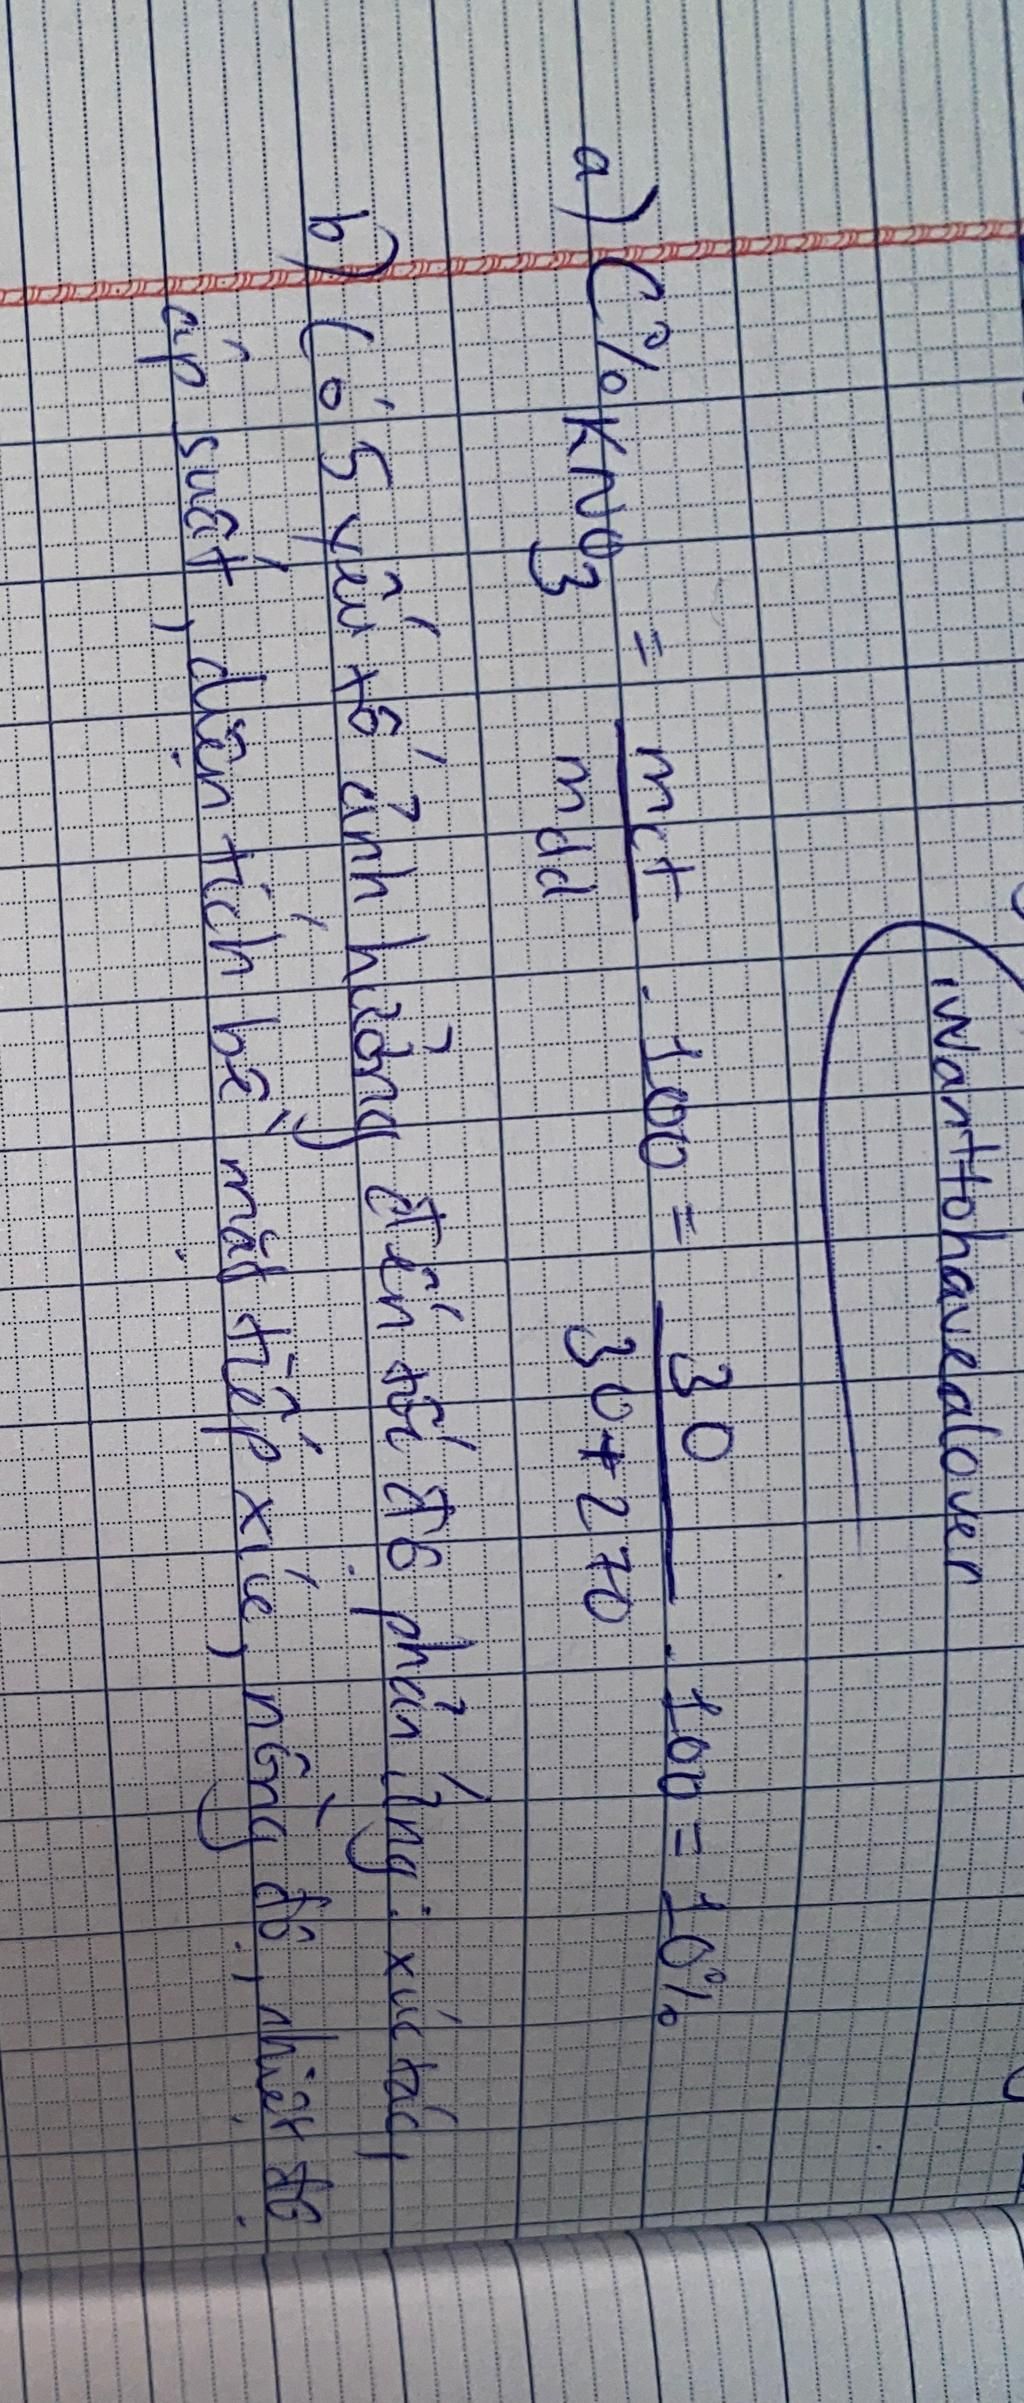 iwanttohavealover
a) C% KNO3 = mct/mdd . 100 = 30/30+270 . 100 = 10%
b) Có 5 yếu tố ảnh hưởng đến tốc độ phản ứng : xúc tác,
áp suất, diện tích bề mặt tiếp xúc, nồng độ, nhiệt độ